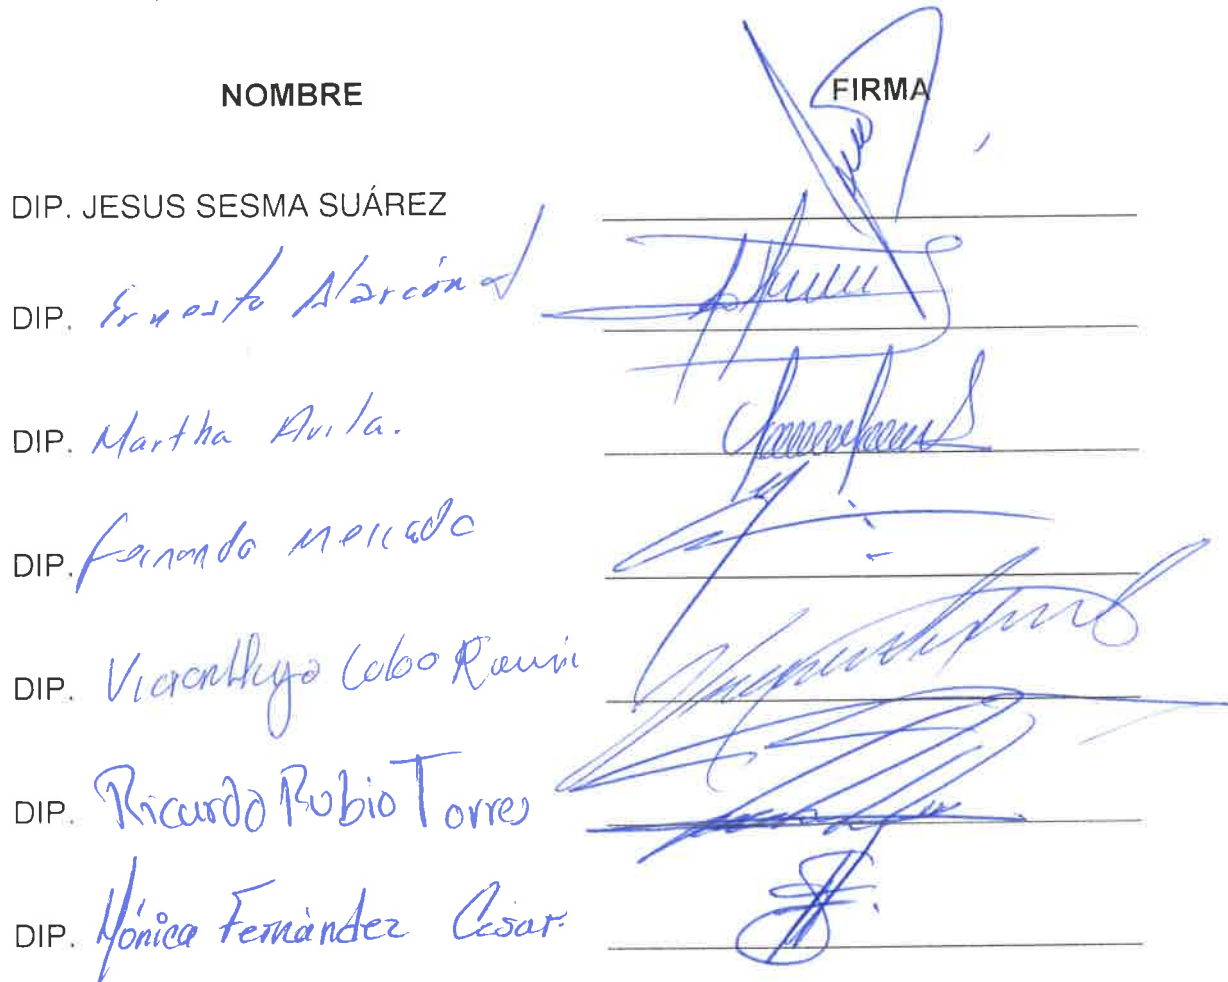 NOMBRE FIRMA
DIP. JESUS SESMA SUÁREZ
DIP. Ernesto Alarcón
DIP. Martha Avila.
DIP. Fernando Mercado
DIP.
DIP. Ricardo Rubio Torres
DIP. Mónica Fernández César.